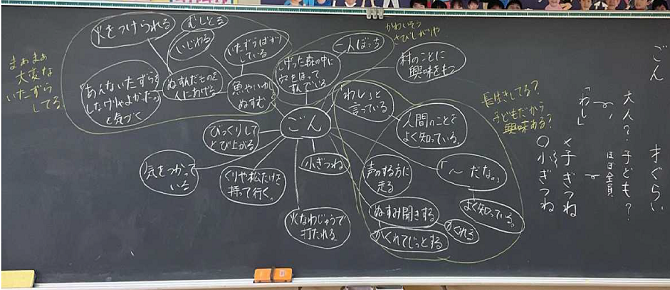 ごん
大人？子ども？
ほぼ全員
「わし」
子ぎつね
○小ぎつね
長生きしてる？
子どもだから
興味ある？
かわいそう
さびしがりや
まぁまぁ
大変な
いたずら
してる
ごん
一人ぼっち
村のことに
興味をもつ
「わし」と
言っている
人間のことを
よく知っている。
「〜だな。」
よく知っている。
声のする方に
走る
ぬすみ聞きする
かくれる
かくれてじっとする
小ぎつね
火なわじゅうで
打たれる
くりや松たけを
持って行く。
びっくりして
とび上がる
気をつかって
いる
しげった森の中に
穴をほって
住んでいる
いたずらばかり
している
魚やいわし
ぬすむ
いじわる
ぬすんだものを
人にあげる
火をつけられる
「あんないたずらを
しなけりゃよかった」
と気づく